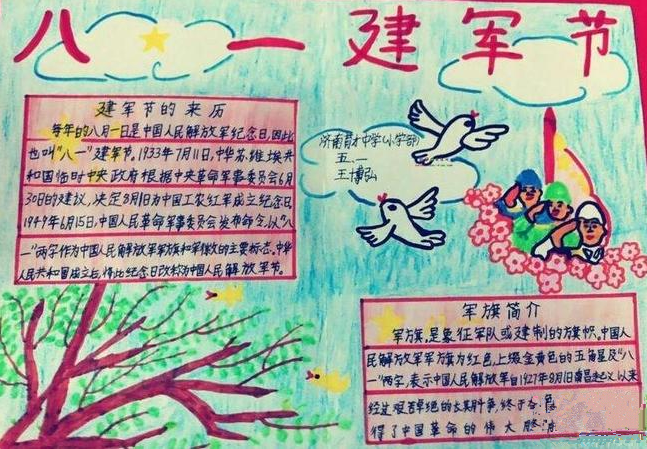 八一建军节
建军节的来历
每年的八月一日是中国人民解放军纪念日,因此
也叫“八一”建军节。1933年7月11日,中华苏维埃共
和国临时中央政府根据中央革命军事委员会6月
30日的建议,决定8月1日为中国工农红军成立纪念日
1949年6月15日,中国人民革命军事委员会发布命令,以“八
一”两字作为中国人民解放军军旗和军徽的主要标志。中华
人民共和国成立后,将此纪念日改称为中国人民解放军节。
济南育才中学(小学部)
五、一
王博弘
军旗简介
军旗,是象征军队或建制的旗帜。中国人
民解放军军旗为红色,上缀金黄色的五角星及“八
一”两字,表示中国人民解放军自1927年8月1日南昌起义以来
经过艰苦卓绝的斗争,终于
得了中国革命的伟大胜